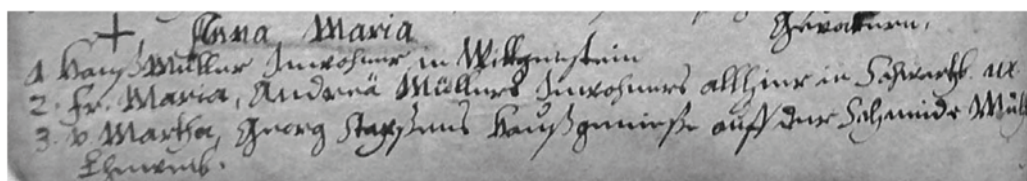 + Anna Maria Gevattern,
1 Hanß Müller Inwohner in Wittgenstein
2. Fr. Maria, Andreä Müllers Inwohners allhier in Schwartzb. ux.
3. v Martha, Georg Haußgenoße auff der Schmiede Mühl
Eheweib.